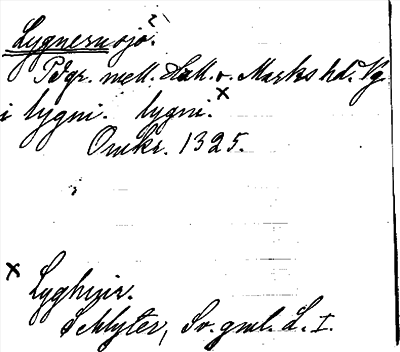 Lygnernsjö.
Pdgr. mell. Hall. o. Marks hd. Vg
i lygni. lygni. x
Omkr. 1325.
x Lyghnir.
Schlyter, Sv. gml. L. I.